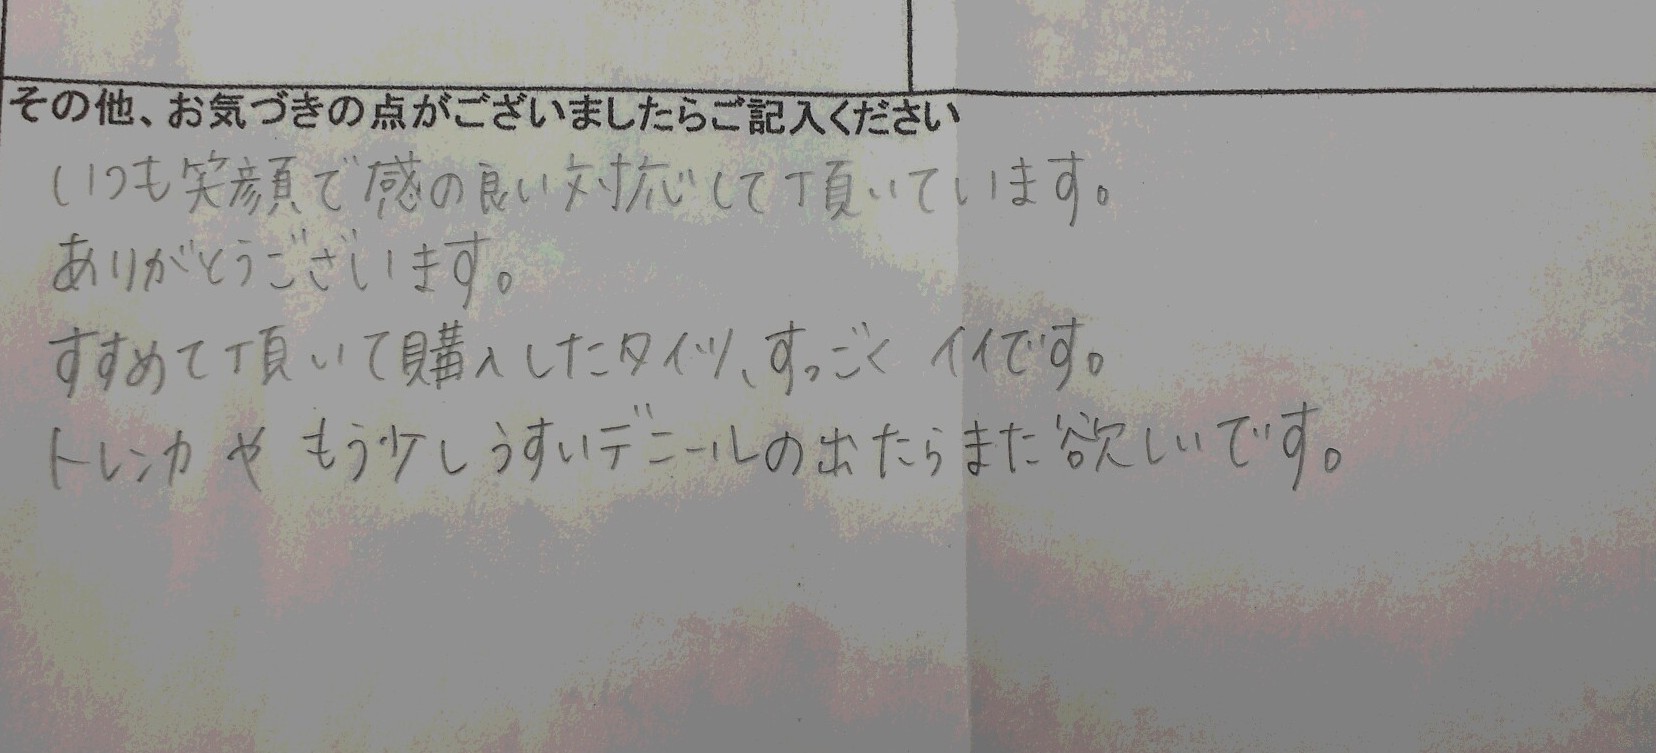 その他、お気づきの点がございましたらご記入ください
いつも笑顔で感の良い対応して頂いています。
ありがとうございます。
すすめて頂いて購入したタイツ、すっごく イイです。
トレンカや もう少しうすいデニールの出たらまた欲しいです。